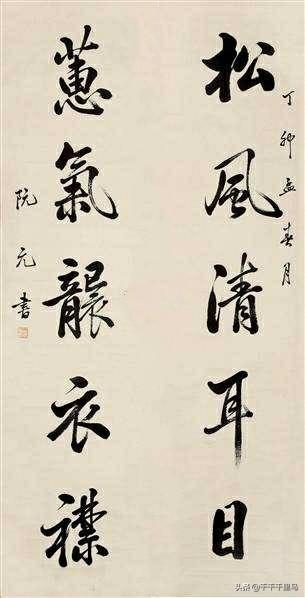 丁卯孟春月
松風清耳目
蕙氣襲衣襟
阮元書
头条 @千千千里马